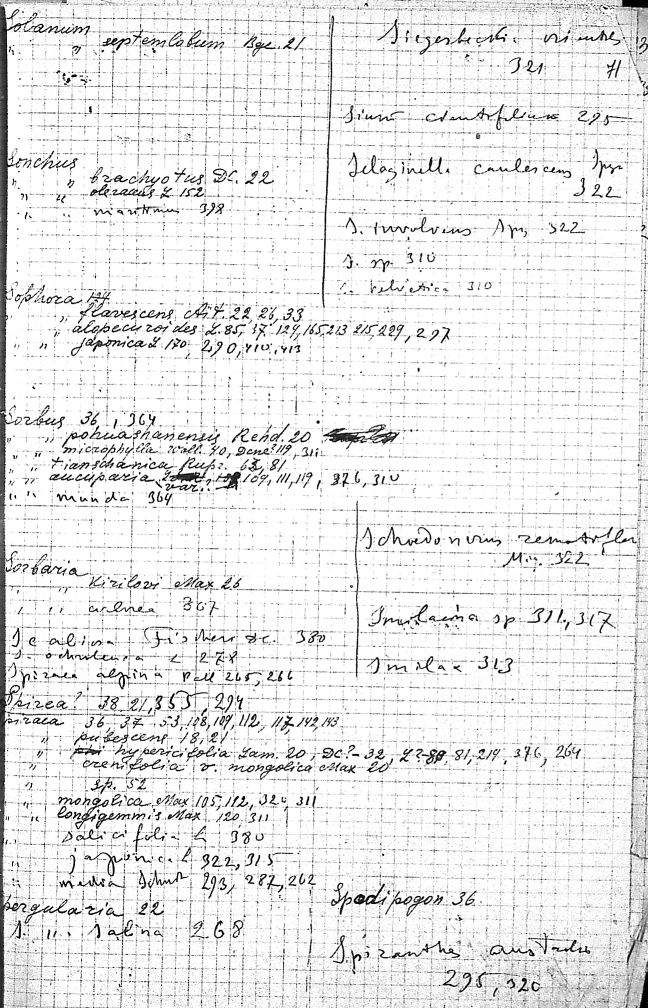 Solanum
" " septemlobum Bge. 21
Sonchus
" " brachyotus DC. 22
" " oleraceus L 152
" " maritimus 398
Sophora 124
" " flavescens Ait. 22, 26, 33
" " alopecuroides L. 85, 37, 129, 165, 213, 215, 229, 297
" " japonica L 170, 290, 410, 413
Sorbus 36, 364
" " pohuashanensis Rehd. 20
" " microphylla Wall. 40, Dcne 119, 311
" " tianschanica Rupr. 81
" " aucuparia 109, 111, 119, 376, 310
var.
" " munda 364
Sorbaria
" " Kirilovi Max 26
" " 367
Scabiosa Fischeri DC. 380
S. ochroleuca L 278
Spiraea alpina Pall 265, 266
Spirea? 38, 21, 355, 294
Spiraea 36, 37, 53, 108, 109, 112, 117, 142, 143
" pubescens 18, 21
" hypericifolia Lam. 20, DC? - 32, L? - 81, 219, 376, 264
" crenifolia v. mongolica Max 20
" sp. 52
" mongolica Max 105, 112, 320, 311
" " longigemmis Max. 120, 311
" salicifolia L 380
" japonica L 322, 315
" media Schm 293, 287, 262
Spergularia 22
S. " salina 268
Siegesbeckia orientalis
321 H
Sium cicutifolium 295
Selaginella caulescens Spr
322
S. involvens Spr 322
S. sp. 310
S. helvetica 310
Schoedonorus remotiflor
Miq. 322
Smilacina sp 311, 317
Smilax 313
Spodipogon 36.
Spiranthes australis
295, 320